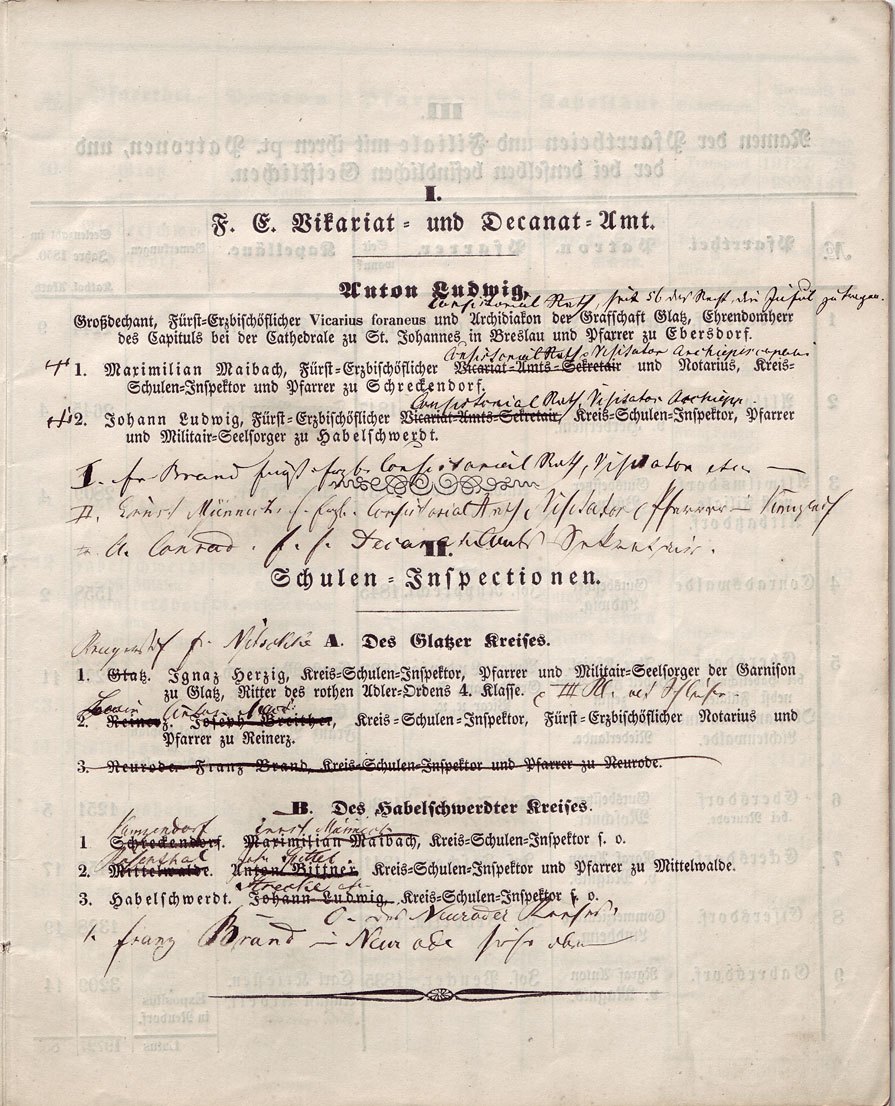 I.
F. E. Vikariat- und Decanat-Amt.
Anton Ludwig,
Consistorial Rath, seit 56 das Recht, die Inful zu tragen.
Großdechant, Fürst-Erzbischöflicher Vicarius foraneus und Archidiakon der Grafschaft Glatz, Ehrendomherr
des Capituls bei der Cathedrale zu St. Johannes in Breslau und Pfarrer zu Ebersdorf.
Consistorial Rath, Visitator
1. Maximilian Maibach, Fürst-Erzbischöflicher Vicariat-Amts-Sekretair und Notarius, Kreis-
Schulen-Inspektor und Pfarrer zu Schreckendorf.
Consistorial Rath, Visitator
2. Johann Ludwig, Fürst-Erzbischöflicher Vicariat-Amts-Sekretair, Kreis-Schulen-Inspektor, Pfarrer
und Militair-Seelsorger zu Habelschwerdt.
I. fr. Brand Consistorial Rath, Visitator
II. Ernst Consistorial Rath, Visitator, Pfarrer
A. Conrad. Decanat Amts Sekretair.
II.
Schulen-Inspectionen.
fr. Nitschke
A. Des Glatzer Kreises.
1. Glatz. Ignaz Herzig, Kreis-Schulen-Inspektor, Pfarrer und Militair-Seelsorger der Garnison
zu Glatz, Ritter des rothen Adler-Ordens 4. Klasse.
2. Reinerz. Joseph Breither, Kreis-Schulen-Inspektor, Fürst-Erzbischöflicher Notarius und
Pfarrer zu Reinerz.
3. Neurode. Franz Brand, Kreis-Schulen-Inspektor und Pfarrer zu Neurode.
B. Des Habelschwerdter Kreises.
Kunzendorf Ernst
1 Schreckendorf. Maximilian Maibach, Kreis-Schulen-Inspektor s. o.
Rosenthal
2. Mittelwalde. Anton Bittner Kreis-Schulen-Inspektor und Pfarrer zu Mittelwalde.
3. Habelschwerdt. Johann Ludwig, Kreis-Schulen-Inspektor s. o.
C. des Neuroder Kreises.
1. Franz Brand in Neurode siehe oben